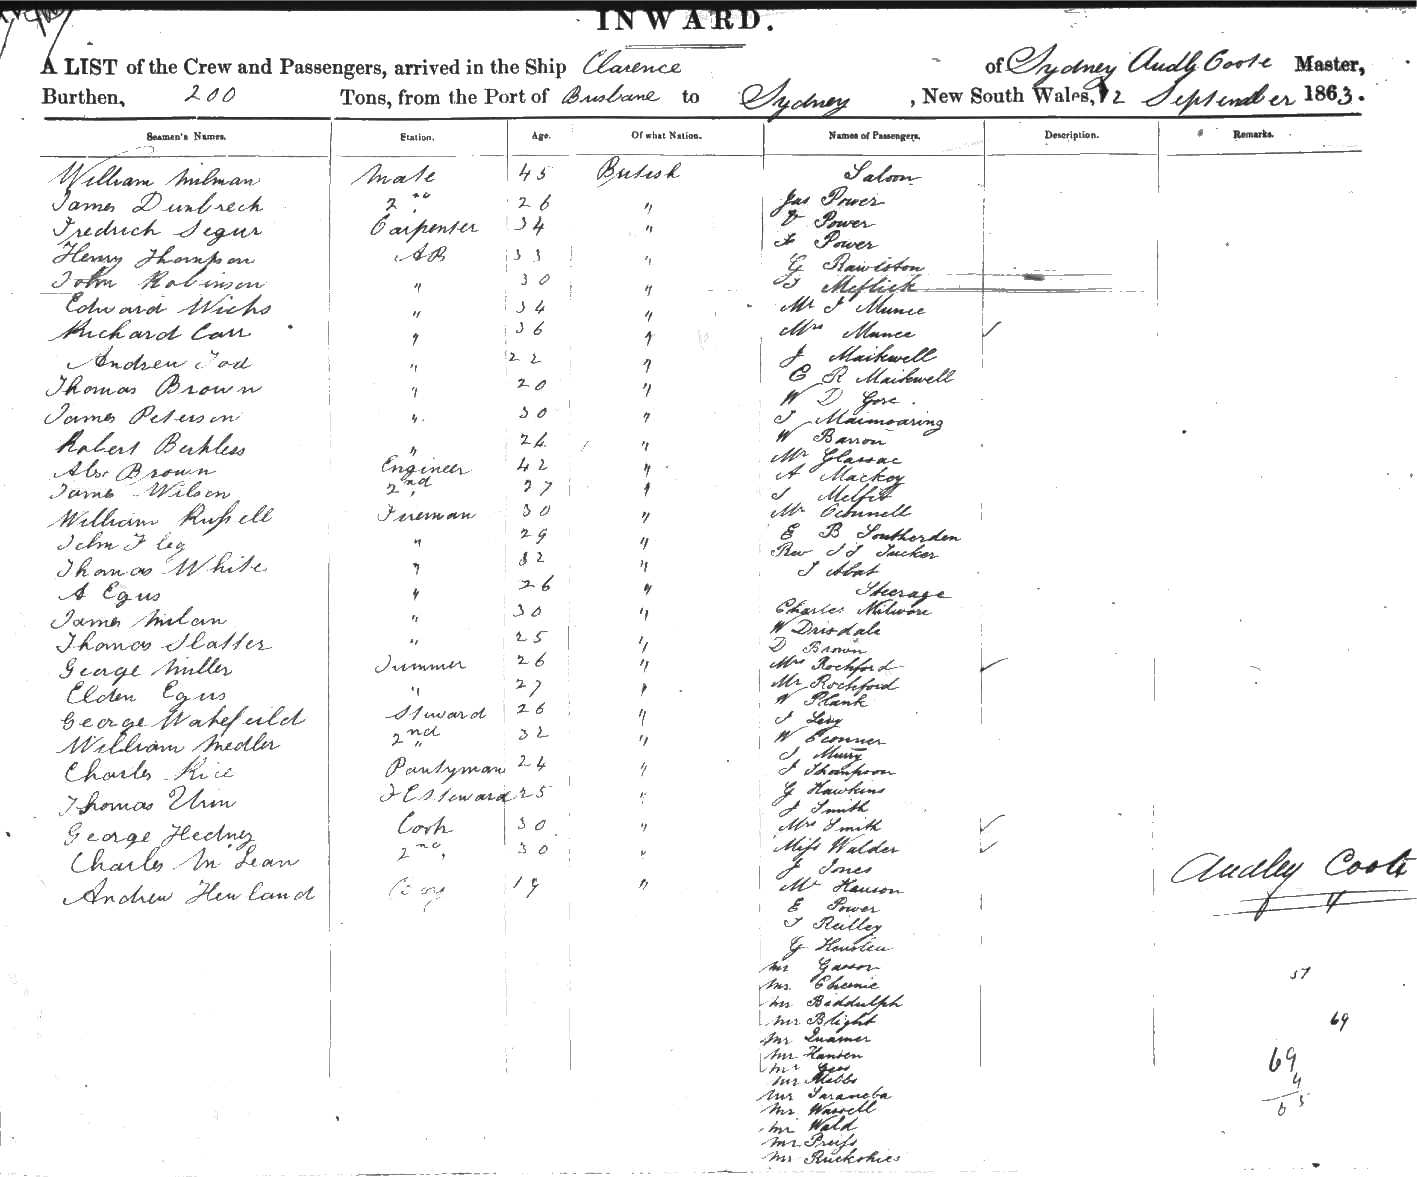 INWARD.
A LIST of the Crew and Passengers, arrived in the Ship Clarence of Sydney Audley Coote Master,
Burthen, 200 Tons, from the Port of Brisbane to Sydney, New South Wales, 12 September 1863.
Seamen's Names. Station. Age. Of what Nation. Names of Passengers. Description. Remarks.
William Milman Mate 45 British
James Dunbrech 2nd " 26 "
Fredrich Segur Carpenter 34 "
Henry Thompson AB 33 "
John Robinson " 30 "
Edward Wicks " 34 "
Richard Carr " 36 "
Andrew Tod " 22 "
Thomas Brown " 20 "
James Peterson " 30 "
Robert Berkless " 24 "
Alex Brown Engineer 42 "
James Wilson 2nd " 27 "
William Russell Fireman 30 "
John Fleg " 29 "
Thomas White " 32 "
A Egus " 26 "
James Milan " 30 "
Thomas Slatter " " 25 "
George Miller Trimmer 26 "
Elden Egus " 27 "
George Wakefeild Steward 26 "
William Medler 2nd " 32 "
Charles Rice Pantryman 24 "
Thomas Urin F C Steward 25 "
George Hedney Cook 30 "
Charles McLean 2nd " 30 "
Andrew Hewland 19 "
Saloon
Jas Power
V Power
F Power
G Rawlston
Mr J Munce
Mrs Munce ✓
J Maikwell
C R Maikwell
W D Gore.
J Mainwaring
W Barron
Mr Glassac
A Mackoy
J Melfit
Mr Oconnell
E B Southerden
Rev J J Tucker
J Abat
Steerage
Charles Milwore
W Drisdale
D Brown
Mrs Rochford ✓
Mr Rochford
W Plank
J Levy
W Oconner
J Murry
J Thompson
G Hawkins
J Smith
Mrs Smith ✓
Miss Walder ✓
J Jones
Mr Hanson
E Power
J Reilley
G Housten
Mr Gasson
Mr
Mr Biddulph
Mr Blight
Mr
Mr Hansen
Mr
Mr
Mr
Mr Wassell
Mr Wald
Mr Preiss
Mr
Audley Coote
57
69
69
4
65